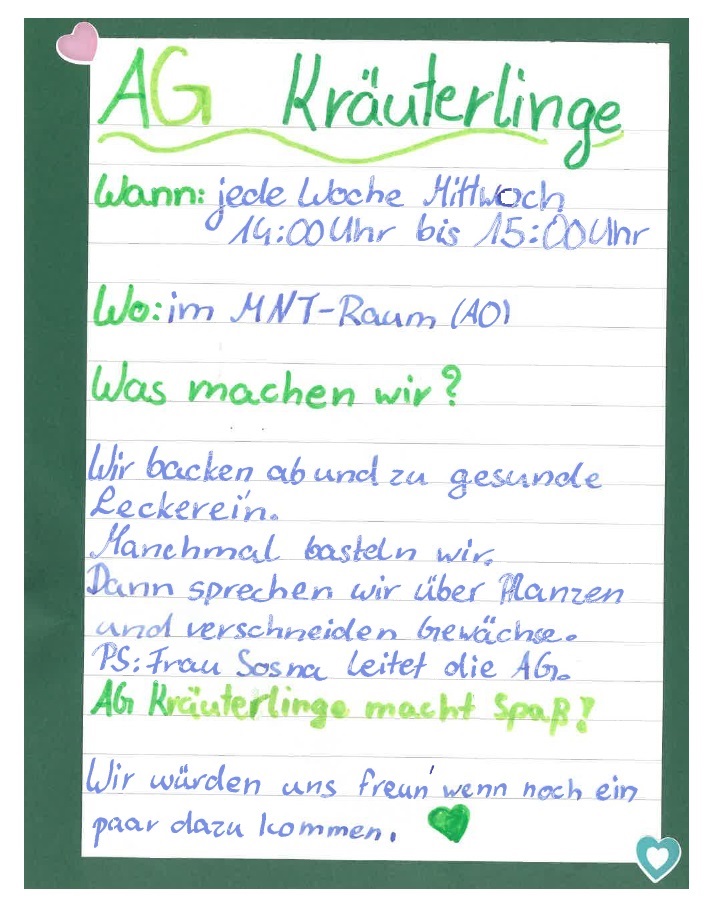 AG Kräuterlinge
Wann: jede Woche Mittwoch
14:00 Uhr bis 15:00 Uhr
Wo: im MNT-Raum (A0)
Was machen wir?
Wir backen ab und zu gesunde
Leckerein.
Manchmal basteln wir.
Dann sprechen wir über Pflanzen
und verschneiden Gewächse.
PS: Frau Sosna leitet die AG.
AG Kräuterlinge macht Spaß!
Wir würden uns freun' wenn noch ein
paar dazu kommen.